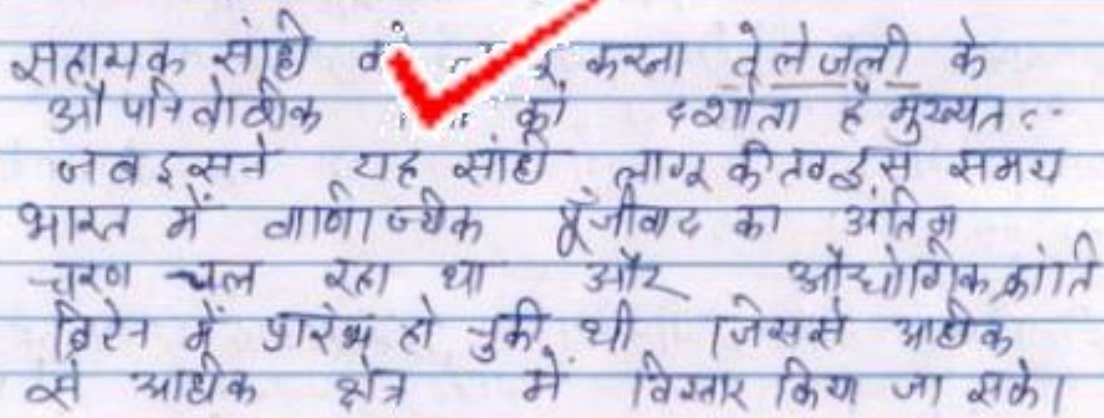 सहायक संधि करना वेलेजली के
औपनिवेशिक को दर्शाता है मुख्यत:-
जब इसने यह संधि लागू की तब इस समय
भारत में वाणिज्यिक पूंजीवाद का अंतिम
चरण चल रहा था और औद्योगिक क्रांति
ब्रिटेन में प्रारंभ हो चुकी थी जिससे अधिक
से अधिक क्षेत्र में विस्तार किया जा सके।